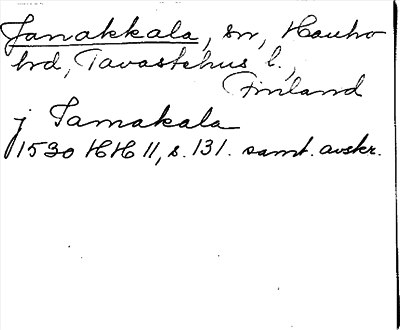 Janakkala, sn, Hauho
hd, Tavastehus l.,
Finland
j Tamakala
1530 HH II, s. 131. samt. avskr.